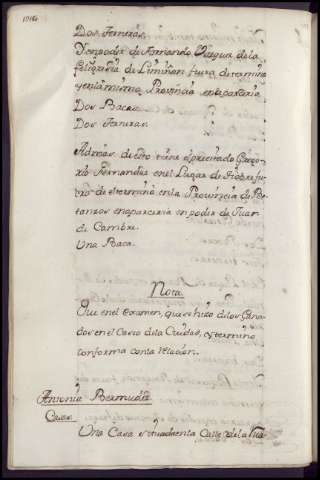 Dos Terneras.
Yen poder de Fernando Vazquez dela
feligresia de Limiñon fuera de termino
yen la misma Provincia en aparceria
Dos Bacas.
Dos Terneras.
Admas de esto tiene apreciado Grego-
rio Fernandez en el Lugar de fue-
ra de el termino en la Provincia de Be-
tanzos en aparceria en poder de Juan
de Cambre.
Una Baca.
Nota.
Que en el examen, que se hizo delos Gana-
dos en el Casco dela Ciudad, y termino
conforma con la relacion.
Antonia Bermudez
Casas.
Una Casa situada en la Calle de la